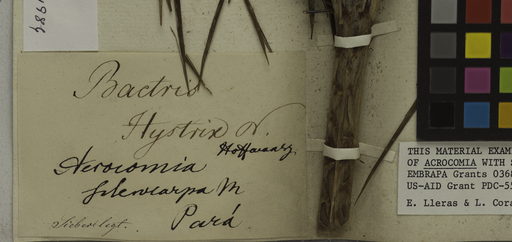 Bactris
Hystrix
Hoffmansg.
Acrocomia
sclerocarpa M
Pará
Sieber legt.
THIS MATERIAL EXAM
OF ACROCOMIA WITH S
EMBRAPA Grants 0368
US-AID Grant PDC-55
E. Lleras & L. Cora